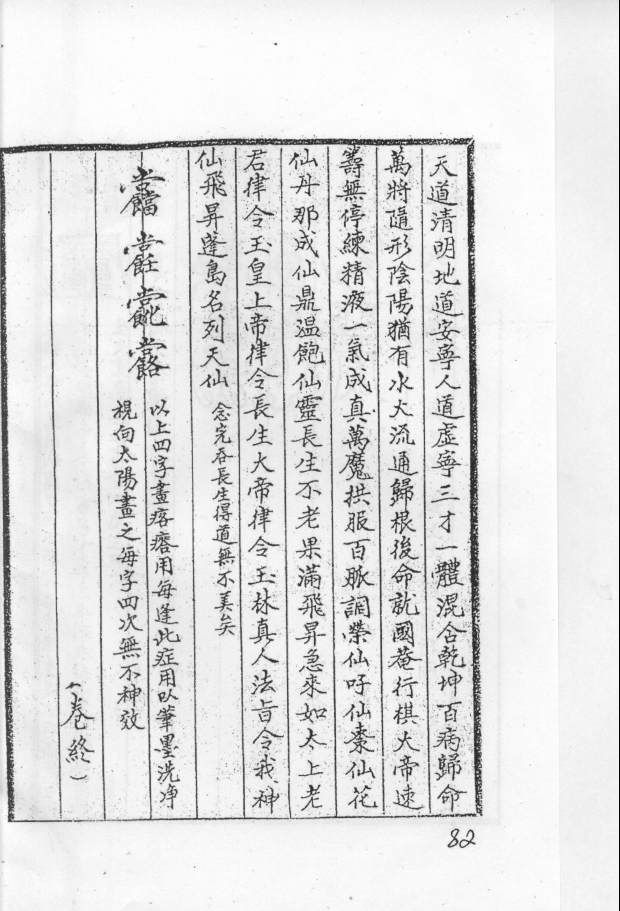 天道清明地道安寧人道虛寧三才一體混合乾坤百病歸命
萬將隨形陰陽猶有水火流通歸根後命就國菴行棋大帝速
壽無停練精液一氣成真萬魔拱服百脈調榮仙吁仙棗仙花
仙丹那成仙鼎温飽仙靈長生不老果滿飛昇急來如太上老
君律令玉皇上帝律令長生大帝律令玉林真人法旨令我神
仙飛昇蓬島名列天仙 念完吞長生得道無不美矣
以上四字畫痞瘩用每逢此症用以筆墨洗净
視向太陽畫之每字四次無不神效
（卷終）
82